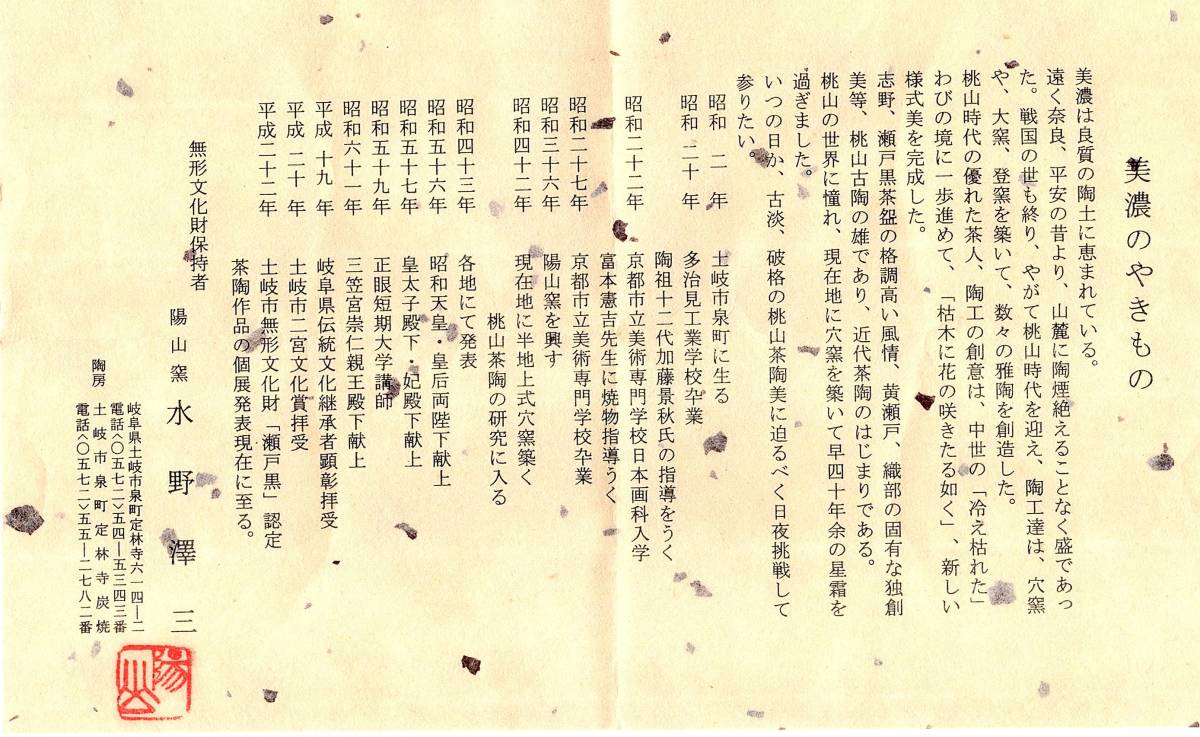 美濃のやきもの
美濃は良質の陶土に恵まれている。
遠く奈良、平安の昔より、山麓に陶煙絶えることなく盛であっ
た。戦国の世も終り、やがて桃山時代を迎え、陶工達は、穴窯
や、大窯、登窯を築いて、数々の雅陶を創造した。
桃山時代の優れた茶人、陶工の創意は、中世の「冷え枯れた」
わびの境に一歩進めて、「枯木に花の咲きたる如く」、新しい
様式美を完成した。
志野、瀬戸黒茶盌の格調高い風情、黄瀬戸、織部の固有な独創
美等、桃山古陶の雄であり、近代茶陶のはじまりである。
桃山の世界に憧れ、現在地に穴窯を築いて早四十年余の星霜を
過ぎました。
いつの日か、古淡、破格の桃山茶陶美に迫るべく日夜挑戦して
参りたい。
昭和 二 年 土岐市泉町に生る
昭和 二十 年 多治見工業学校卒業
陶祖十二代加藤景秋氏の指導をうく
昭和二十二年 京都市立美術専門学校日本画科入学
富本憲吉先生に焼物指導うく
昭和二十七年 京都市立美術専門学校卒業
昭和三十六年 陽山窯を興す
昭和四十二年 現在地に半地上式穴窯築く
桃山茶陶の研究に入る
昭和四十三年 各地にて発表
昭和五十六年 昭和天皇・皇后両陛下献上
昭和五十七年 皇太子殿下・妃殿下献上
昭和五十九年 正眼短期大学講師
昭和六十一年 三笠宮崇仁親王殿下献上
平成 十九 年 岐阜県伝統文化継承者顕彰拝受
平成 二十 年 土岐市二宮文化賞拝受
平成二十二年 土岐市無形文化財「瀬戸黒」認定
茶陶作品の個展発表現在に至る。
無形文化財保持者
陽山窯 水野澤三
岐阜県土岐市泉町定林寺六一四―二
電話〈〇五七二〉五四―五三四三番
陶房 土岐市泉町定林寺炭焼
電話〈〇五七二〉五五―二七八二番
陽山